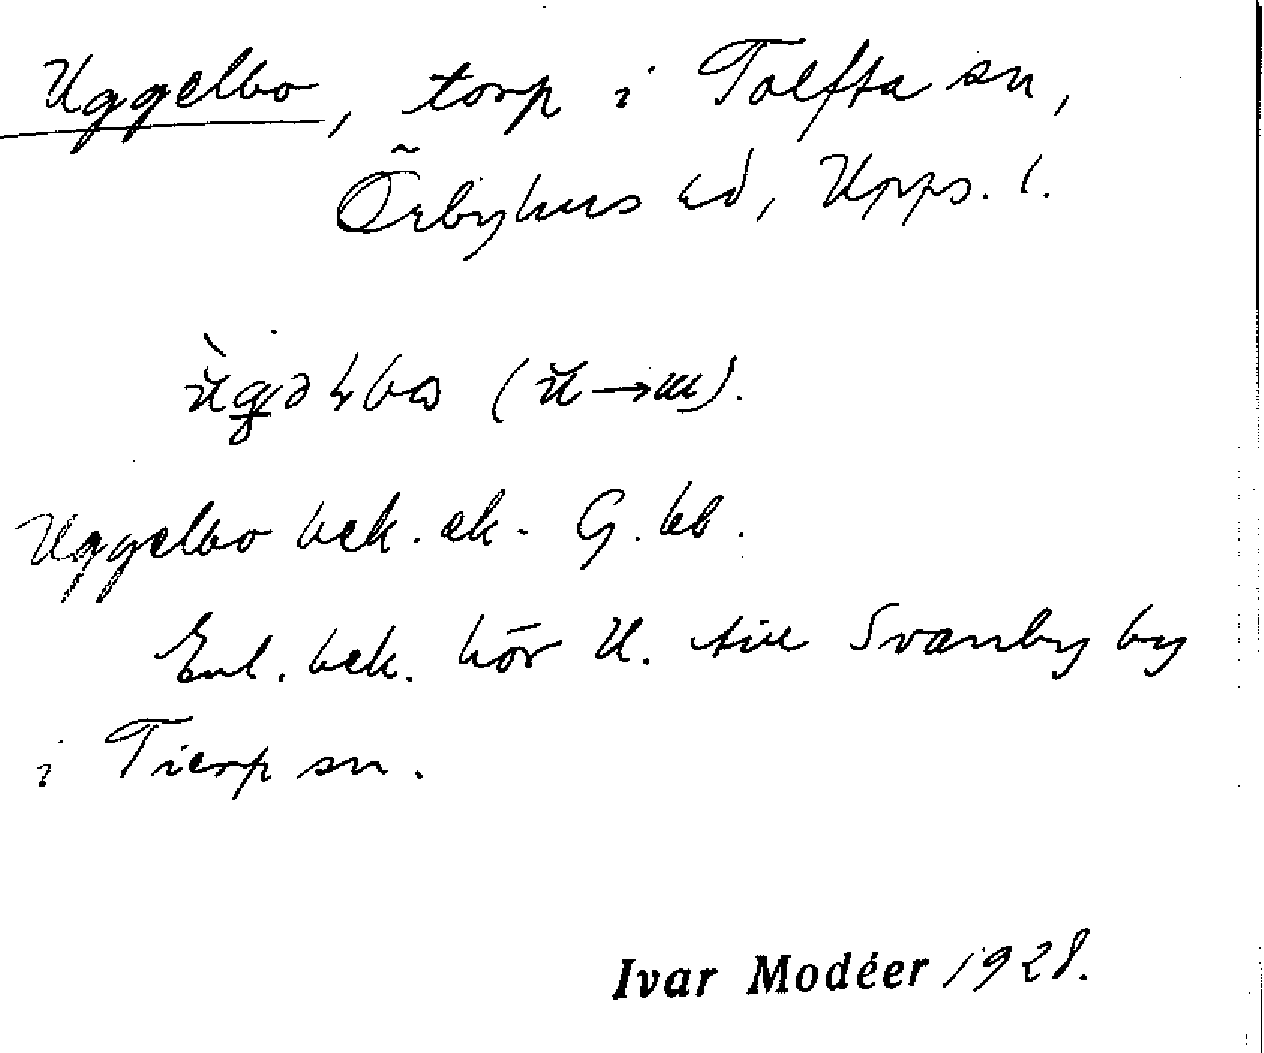 Uggelbo, torp i Tolfta sn,
Örbyhus hd, Upps. l.
Uggelbo bek. ek. G. kb.
Enl. bek. hör U. till Svanby by
i Tierp sn.
Ivar Modéer 1928.